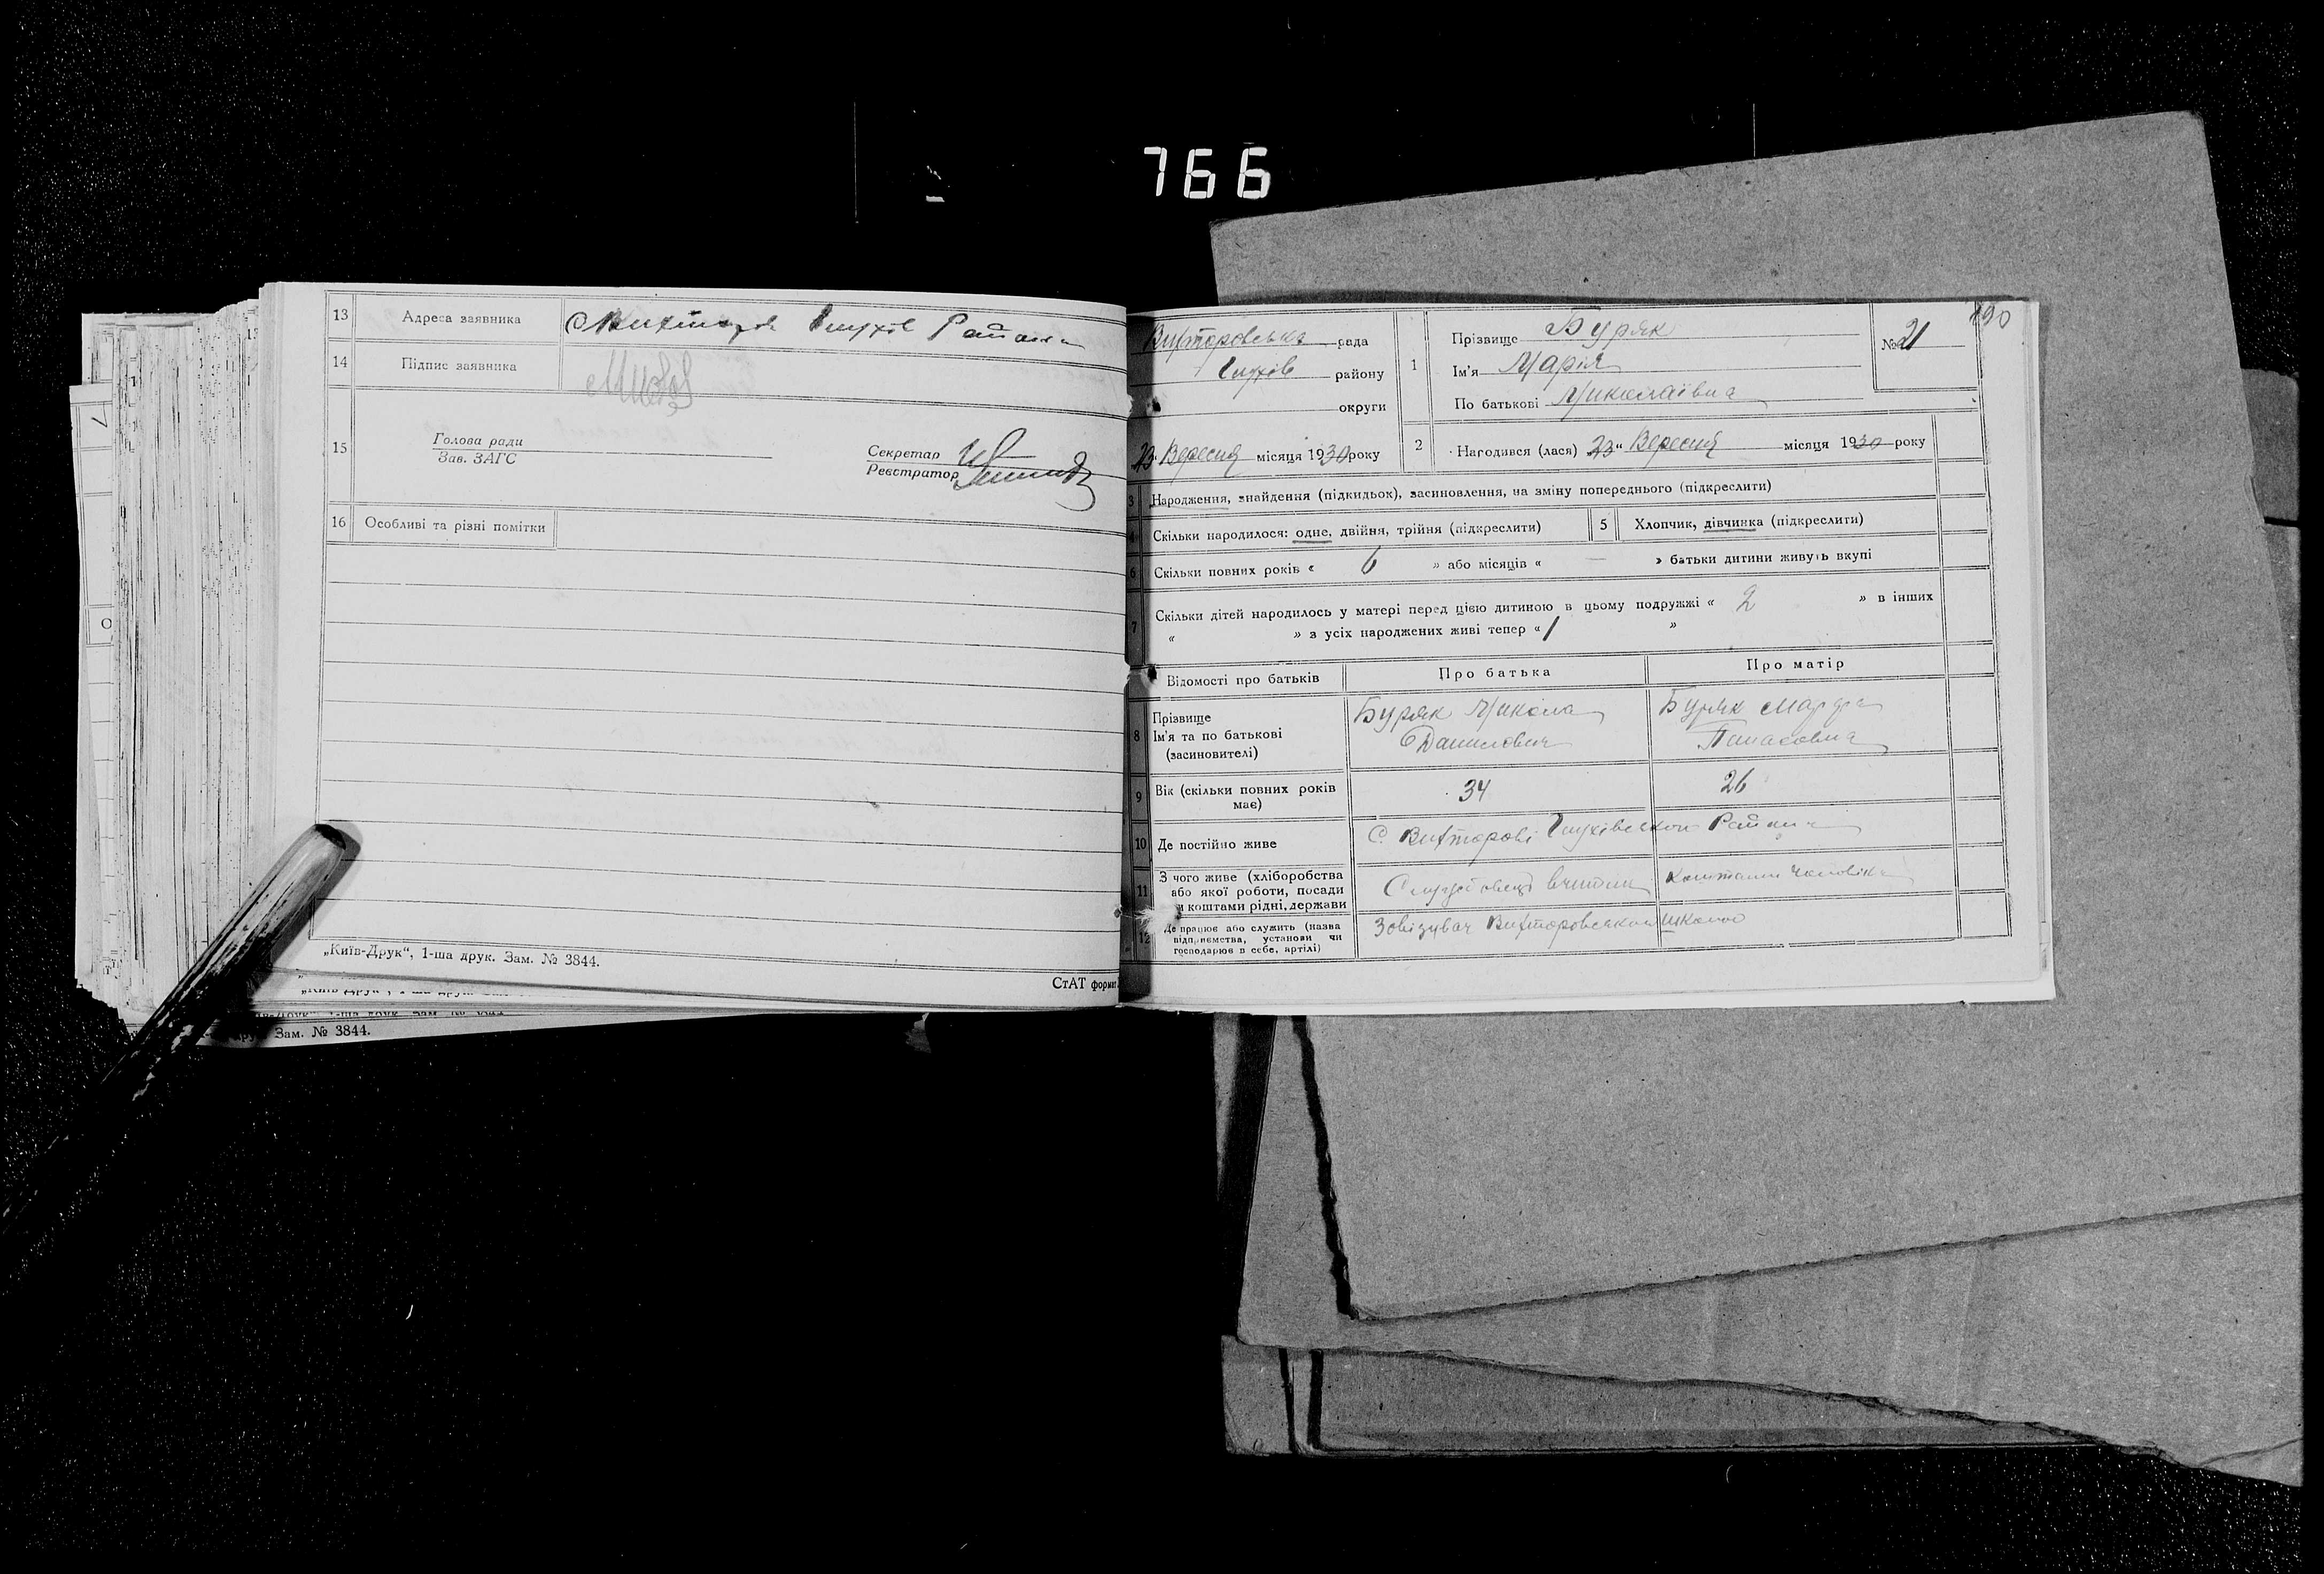 766
13 Адреса заявника
14 Підпис заявника
15 Голова ради
Зав. ЗАГС
Секретар
Реєстратор
16 Особливі та різні помітки
„Київ-Друк“, 1-ша друк. Зам. № 3844.
СтАТ формат
Зам. № 3844.
190
рада
Глухів району
округи
23 Вересня місяця 1930 року
1 Прізвище Буряк
Ім'я Марія
По батькові Миколаївна
№ 21
2 Народився (лася) „23“ Вересня місяця 1930 року
3 Народження, знайдення (підкидьок), засиновлення, на зміну попереднього (підкреслити)
4 Скільки народилося: одне, двійня, трійня (підкреслити)
5 Хлопчик, дівчинка (підкреслити)
6 Скільки повних років « 6 » або місяців « — » батьки дитини живуть вкупі
7 Скільки дітей народилось у матері перед цією дитиною в цьому подружжі « 2 » в інших
« » з усіх народжених живі тепер « 1 »
Відомості про батьків Про батька Про матір
8 Прізвище
Ім'я та по батькові
(засиновителі)
Буряк Микола
Данилович
Буряк Марфа
Панасовна
9 Вік (скільки повних років
має)
34
26
10 Де постійно живе
11 З чого живе (хліборобства
або якої роботи, посади
чи коштами рідні, держави
вчитель
Коштами чоловіка
12 Де працює або служить (назва
підприємства, установи чи
господарює в себе, артілі)
школою